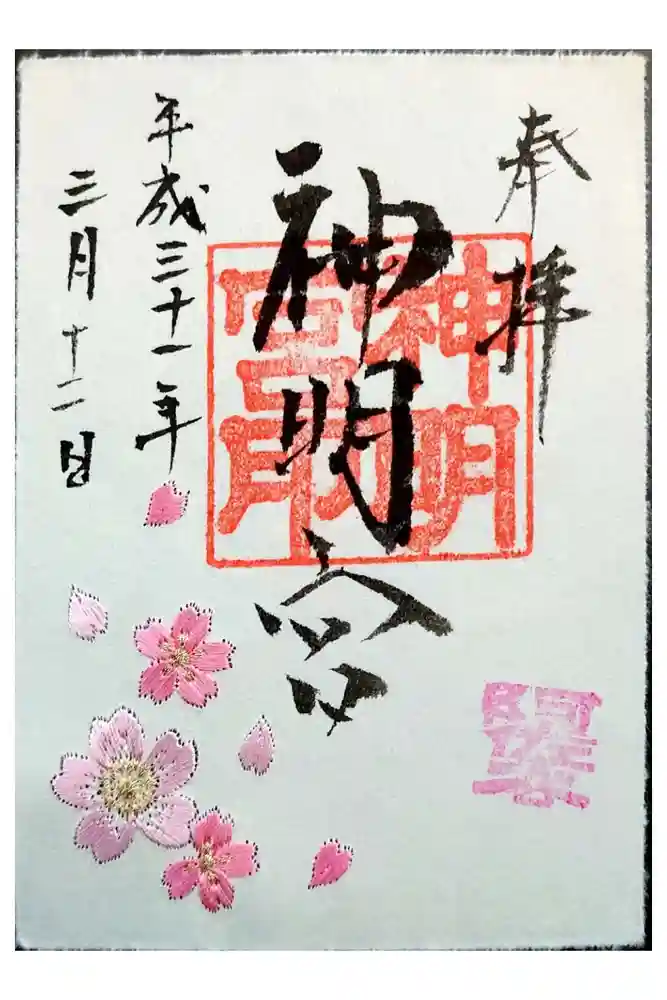 奉拝
神明宮
神明
宮印
平成三十一年
三月十二日